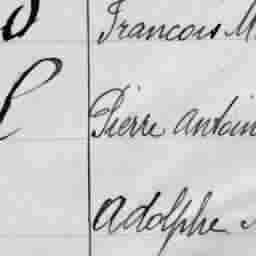 Francois M
Pierre Antoin
Adolphe